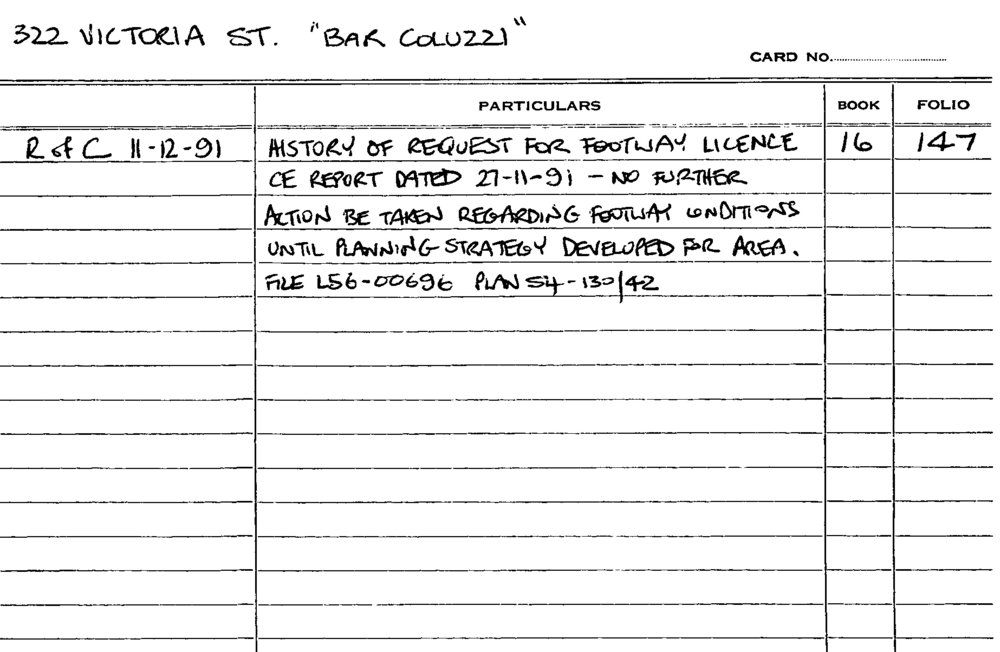 322 VICTORIA ST. "BAR COLUZZI"
CARD NO.
PARTICULARS BOOK FOLIO
R of C 11-12-91 HISTORY OF REQUEST FOR FOOTWAY LICENCE 16 147
CE REPORT DATED 27-11-91 - NO FURTHER
ACTION BE TAKEN REGARDING FOOTWAY CONDITIONS
UNTIL PLANNING STRATEGY DEVELOPED FOR AREA.
FILE L56-00696 PLAN S4-130/42